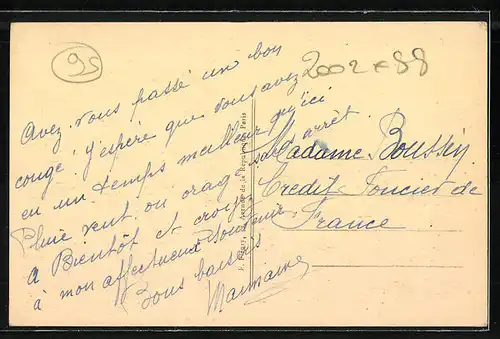 95
2002 e 88
Avez-vous passé un bon
congé. J'espère que vous avez
eu un temps meilleur qu'ici
Pluie vent ou orage sans arrêt.
A Bientôt et croyez
à mon affectueux souvenir
Bons baisers
Marmaine
Madame Boussey
Credit Foncier de
France
Avenue de la République, Paris